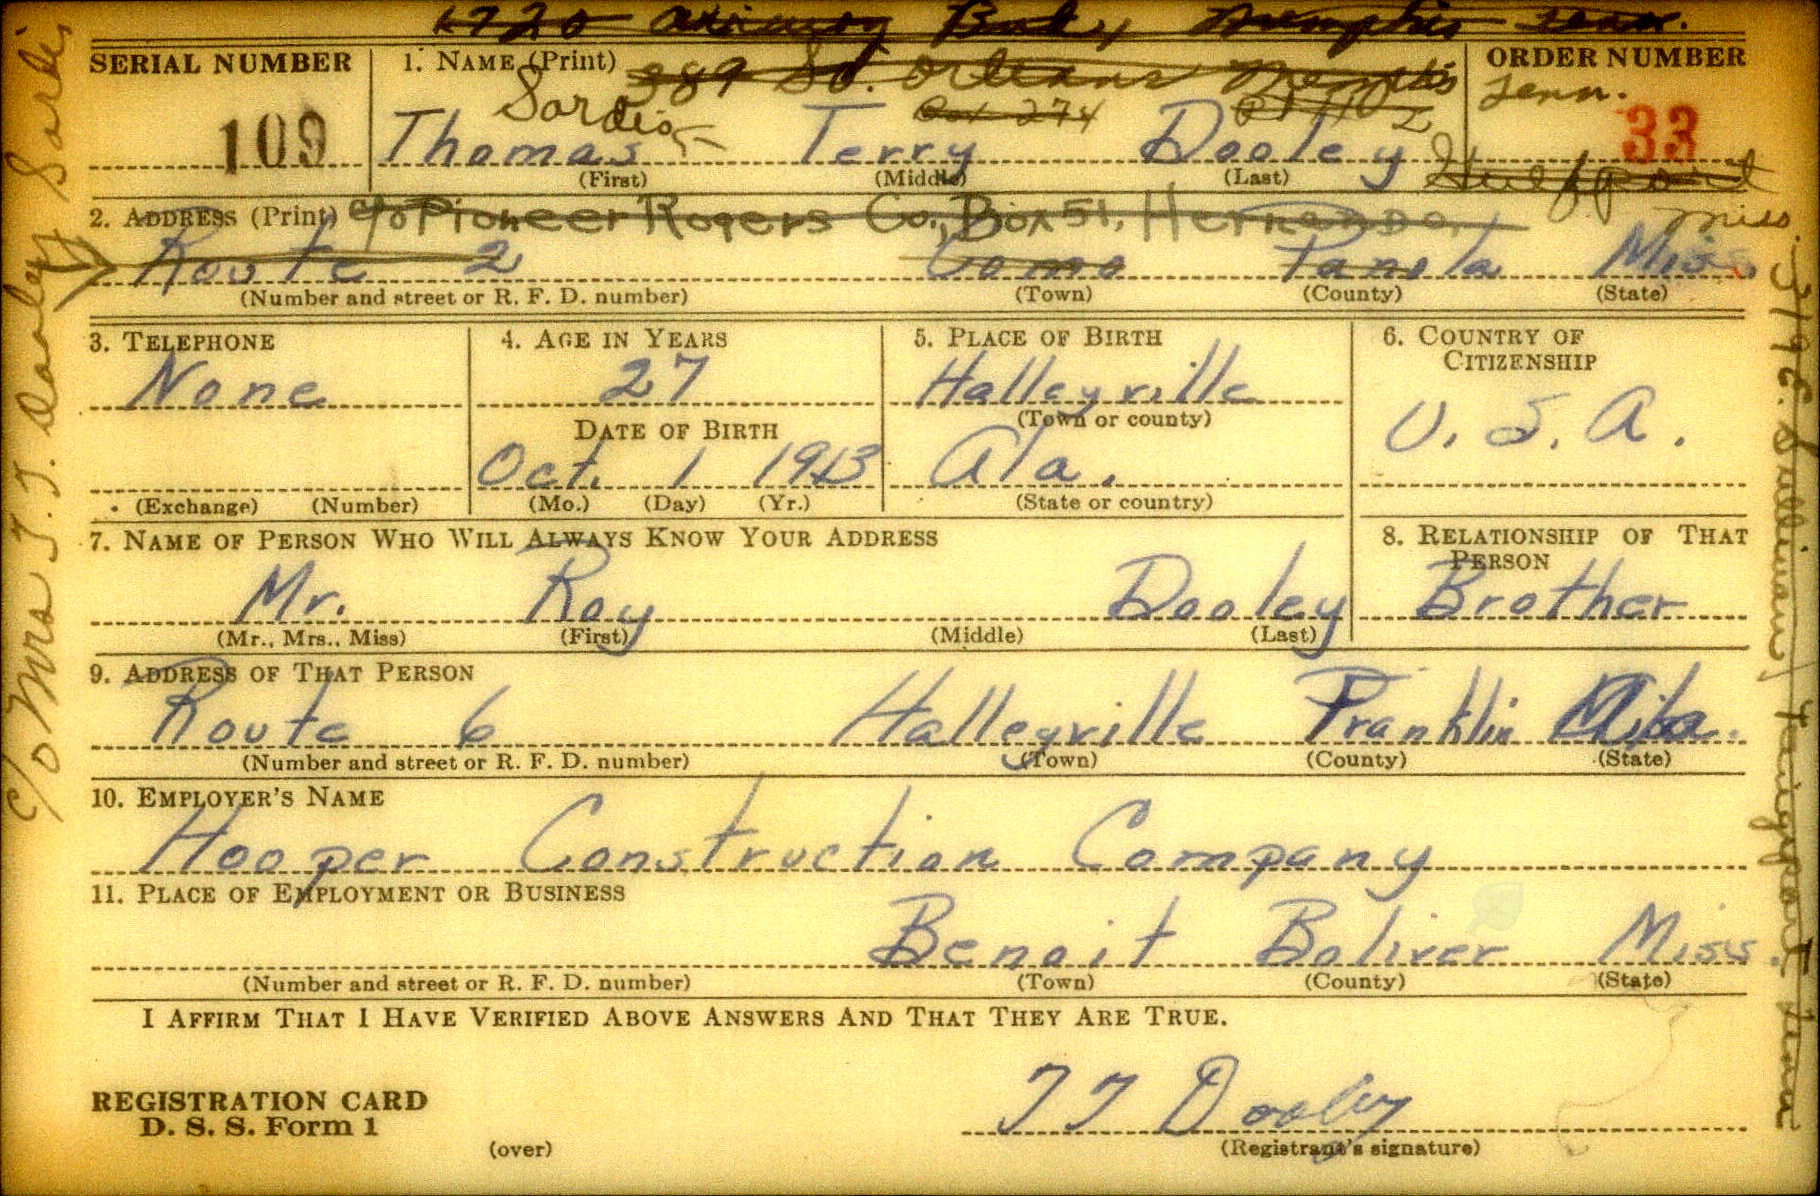 1720 Airway Memphis Tenn.
SERIAL NUMBER
1. NAME (Print)
389 So. Orleans Memphis
ORDER NUMBER
Tenn.
Sardis
Box 274
109
Thomas Terry Dooley
33
(First) (Middle) (Last)
Gulfport
Miss.
2. ADDRESS (Print)
c/o Pioneer Rogers Co., Box 51, Hernando,
Route 2 Como Panola Miss.
(Number and street or R. F. D. number) (Town) (County) (State)
3. TELEPHONE
None
(Exchange) (Number)
4. AGE IN YEARS
27
DATE OF BIRTH
Oct. 1 1913
(Mo.) (Day) (Yr.)
5. PLACE OF BIRTH
Halleyville
(Town or county)
Ala.
(State or country)
6. COUNTRY OF
CITIZENSHIP
U. S. A.
7. NAME OF PERSON WHO WILL ALWAYS KNOW YOUR ADDRESS
Mr. Roy Dooley
(Mr., Mrs., Miss) (First) (Middle) (Last)
8. RELATIONSHIP OF THAT
PERSON
Brother
9. ADDRESS OF THAT PERSON
Route 6 Halleyville Franklin Ala.
(Number and street or R. F. D. number) (Town) (County) (State)
10. EMPLOYER'S NAME
Hooper Construction Company
11. PLACE OF EMPLOYMENT OR BUSINESS
Benoit Boliver Miss.
(Number and street or R. F. D. number) (Town) (County) (State)
I AFFIRM THAT I HAVE VERIFIED ABOVE ANSWERS AND THAT THEY ARE TRUE.
T T Dooley
REGISTRATION CARD
D. S. S. Form 1
(over)
(Registrant's signature)
c/o Mrs T. T. Dooley Sardis
319 E. Sullivan, Kingsport Tenn